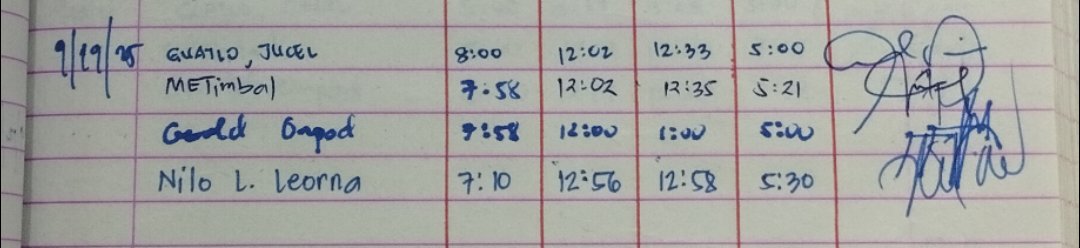 9/19/25 GUATLO, JUCEL 8:00 12:02 12:33 5:00
METimbal 7:58 12:02 12:35 5:21
Gerald Ongod 7:58 12:00 1:00 5:00
Nilo L. Leorna 7:10 12:56 12:58 5:30